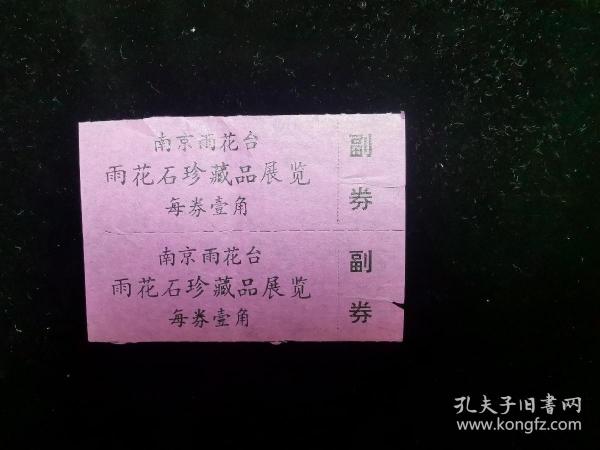 南京雨花台
雨花石珍藏品展览
每券壹角
副券
南京雨花台
雨花石珍藏品展览
每券壹角
副券
孔夫子旧书网
www.kongfz.com